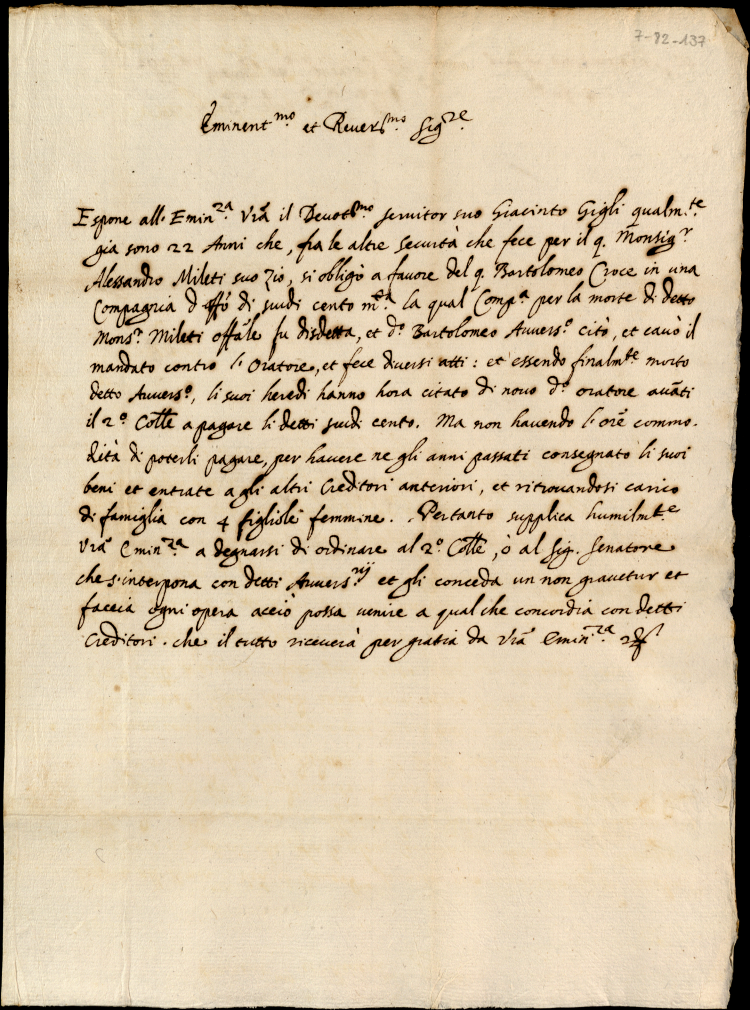 7-82-137
Eminent.mo et Rever.mo Sig.re
Espone all' Emin.za Vrã il Devot.mo servitor suo Giacinto Gigli qualm.te
gia sono 22 Anni che, fra le altre securtà che fece per il q. Monsig.r
Alessandro Mileti suo Zio, si obligò a favore del q. Bartolomeo Croce in una
Compagnia d' offõ di scudi cento m.ta la qual Comp.a per la morte di detto
Mons.r Mileti offãle fu disdetta, et d.o Bartolomeo Avvers.o citò, et cavò il
mandato contro l'Oratore, et fece diversi atti: et essendo finalm.te morto
detto Avvers.o, li suoi heredi hanno hora citato di novo d.o oratore avãti
il 2.o Colle a pagare li detti scudi cento. Ma non havendo l'orẽ commo.
dità di poterli pagare, per havere ne gli anni passati consegnato li suoi
beni et entrate a gli altri Creditori anteriori, et ritrovandosi carico
di famiglia con 4 figliole femmine. Pertanto supplica humilm.te
Vrã Emin.za a degnarsi di ordinare al 2.o Colle, ò al Sig. Senatore
che s'interpona con detti Avvers.rij et gli conceda un non gravetur et
faccia ogni opera acciò possa venire a qual che concordia con detti
Creditori. che il tutto riceverà per gratia da Vrã Emin.za